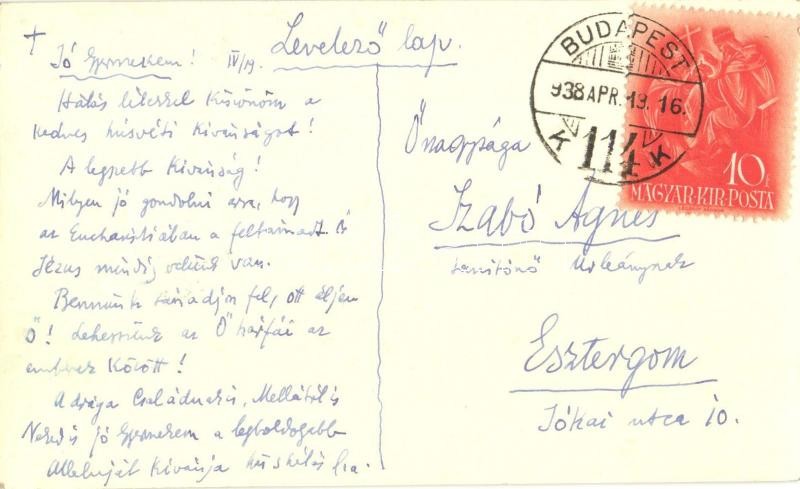 Jó Gyermekem! IV/19.
Hálás lélekkel köszönöm a
kedves húsvéti kívánságot!
A legszebb kívánság!
Milyen jó gondolni arra, hogy
az Eucharistiában a feltámadt Úr
Jézus mindig velünk van.
Bennünk támadjon fel, ott éljen
Ő! Lehessünk az Ő hárfái az
emberek között!
A drága Családnak is,
Neked is jó Gyermekem a legboldogabb
Alleluját kívánja
Levelező lap.
Őnagysága
Szabó Ágnes
tanítónő Urleánynak
Esztergom
Jókai utca 10.
BUDAPEST
938 APR. 19. 16.
114
K K
10 f
MAGYAR·KIR·POSTA